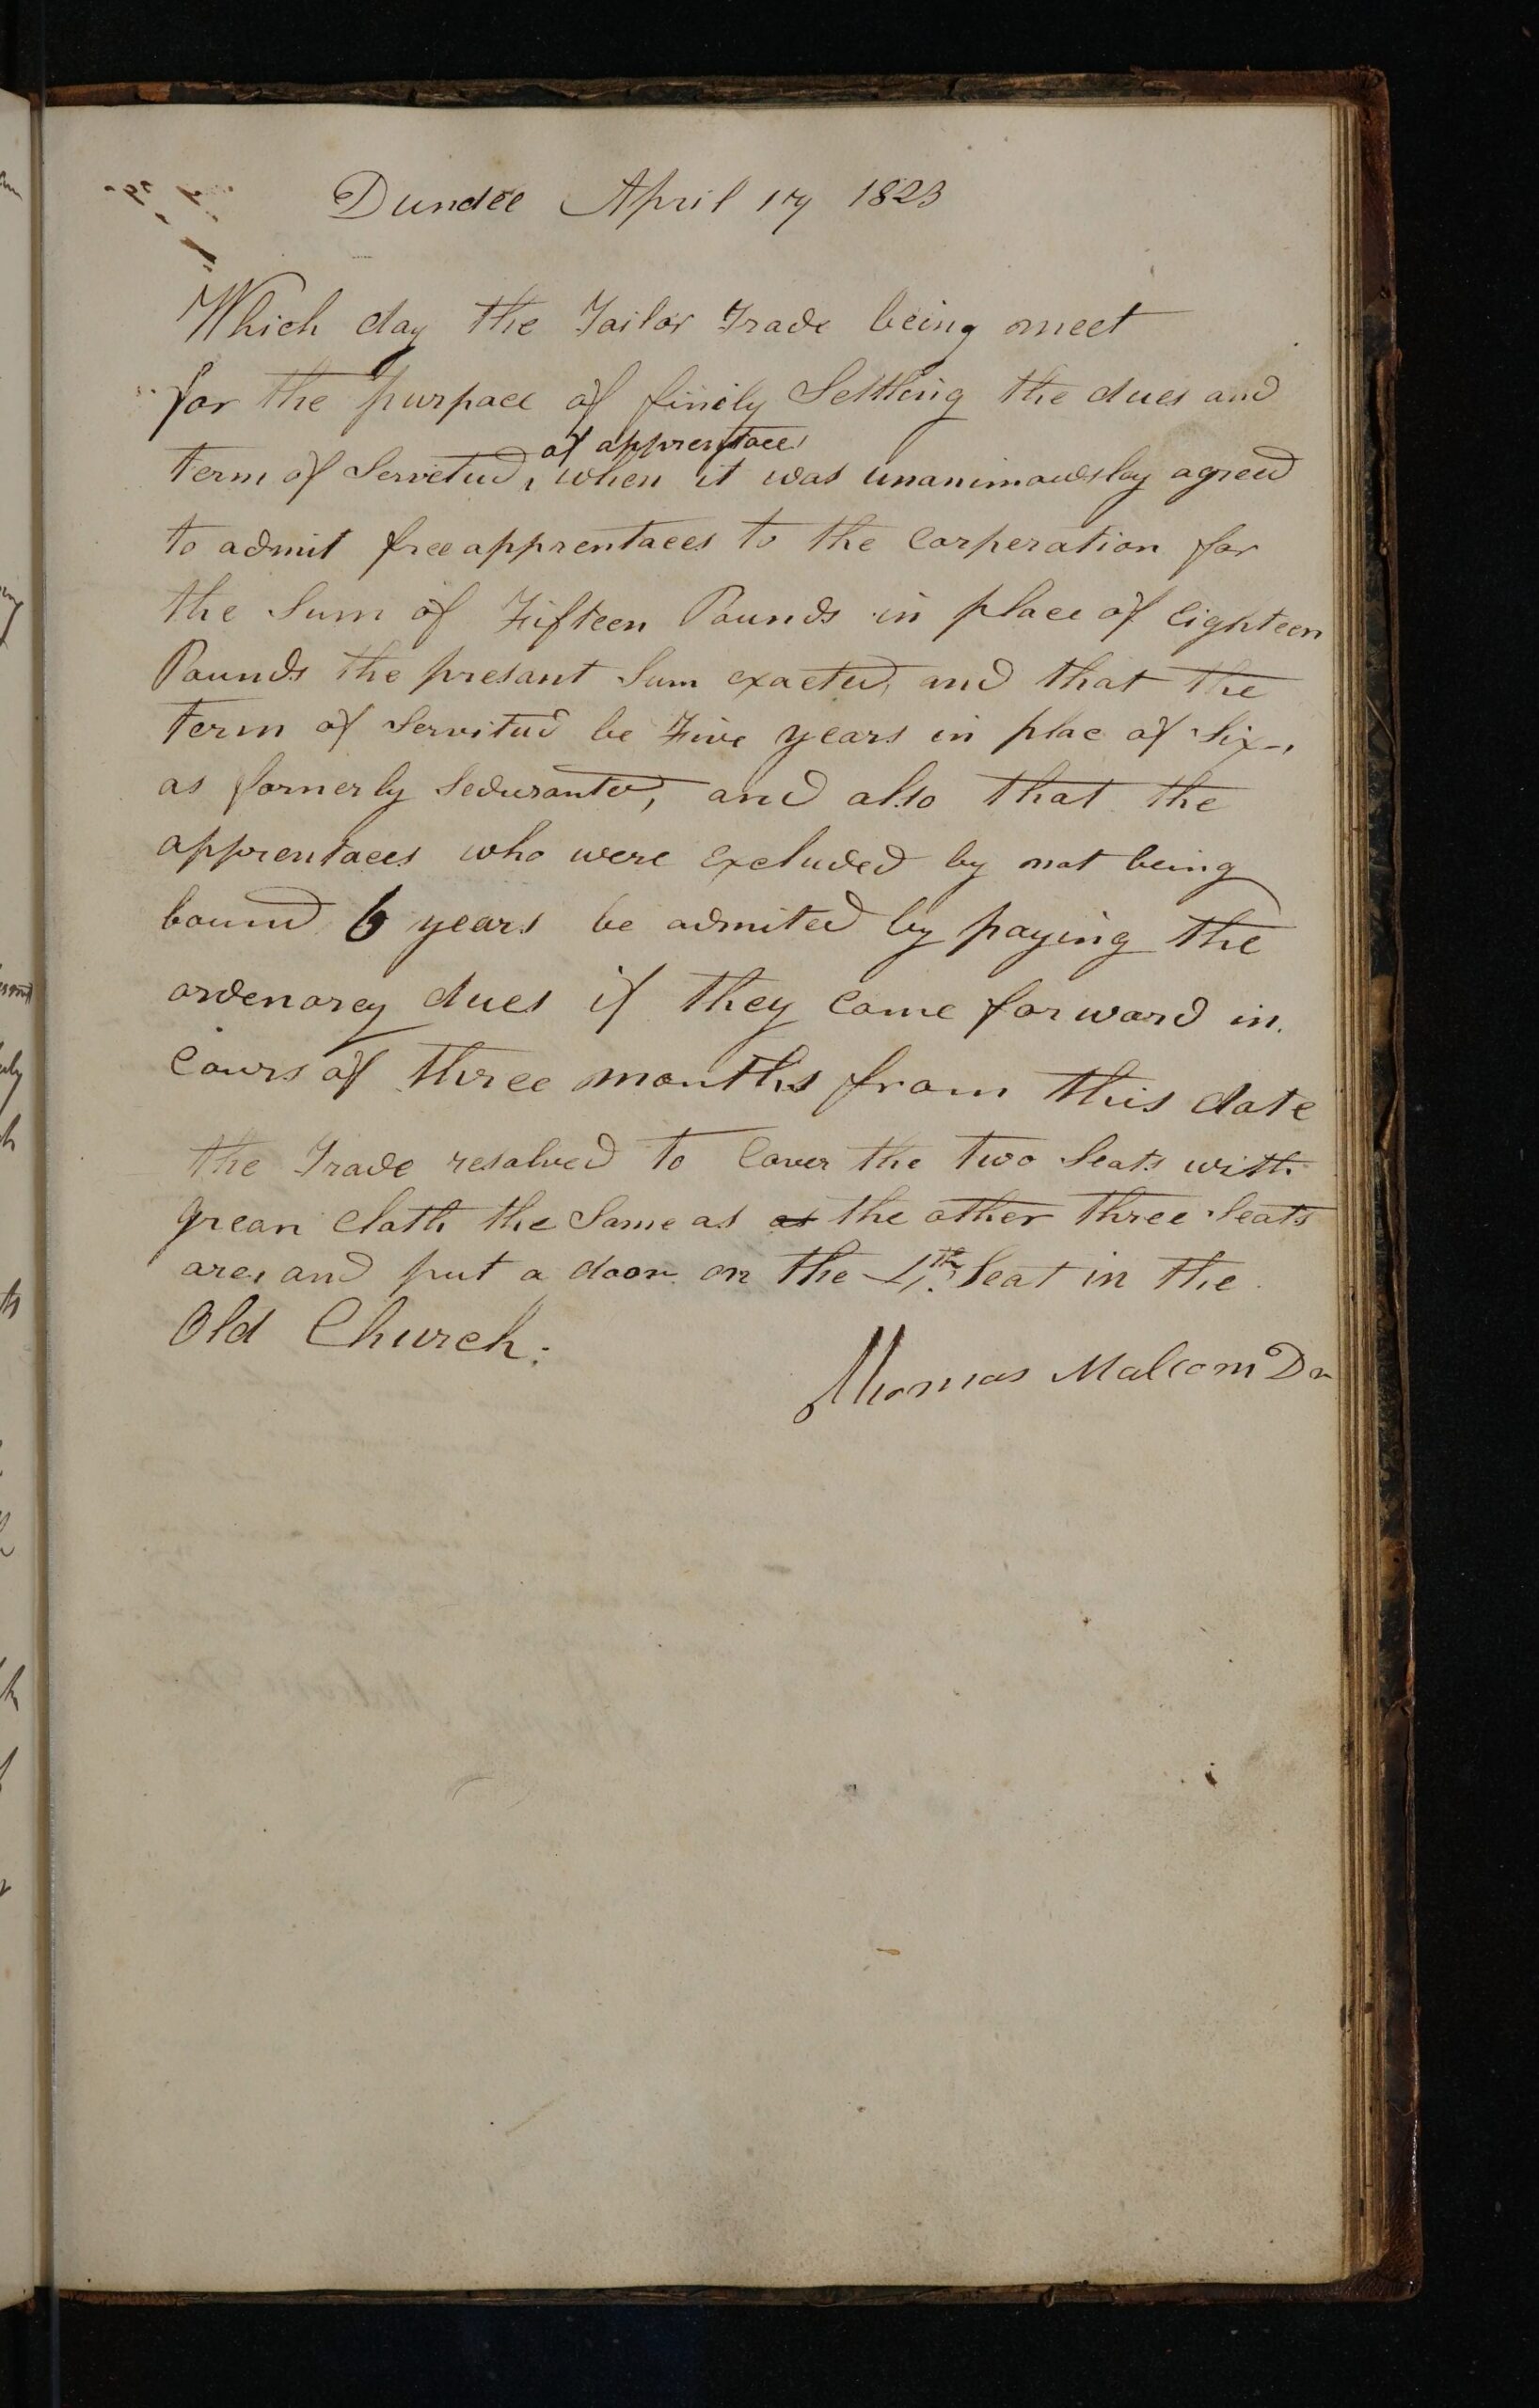 Dundee April 17 1823
Which day the Tailor Trade being meet
for the purpace of finily Settling the dues and
of apprentaces
term of Servetud, when it was unanimouslay agreed
to admit free apprentaces to the Corperation for
the Sum of Fifteen Pounds in place of Eighteen
Pounds the presant Sum exacted, and that the
term of Servitud be Five years in plac of Six,
as formerly and also that the
apprentaces who were Excluded by not being
bound 6 years be admited by paying the
ordenarey dues if they Come forward in
Cours of three months from this date
the Trade resolved to Cover the two Seats with
grean Cloth the Same as as the other three Seats
are, and put a door on the 4th Seat in the
Old Church.
Thomas Malcom Dn